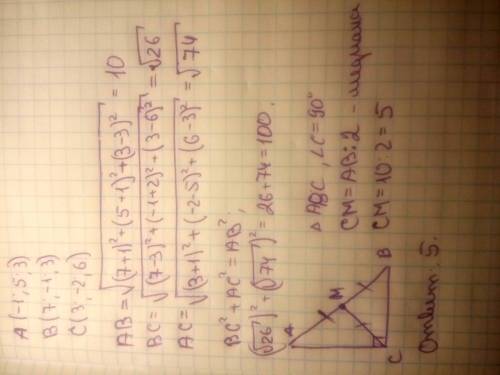 A (-1; 5; 3)
B (7; -1; 3)
C (3; -2; 6)
AB = √((7+1)² + (5+1)² + (3-3)²) = 10
BC = √((7-3)² + (-1+2)² + (3-6)²) = √26
AC = √((3+1)² + (-2-5)² + (6-3)²) = √74
BC² + AC² = AB²;
(√26)² + (√74)² = 26 + 74 = 100.
△ ABC, ∠C = 90°
CM = AB : 2 - медиана
CM = 10 : 2 = 5
A
M
B
C
Ответ: 5.